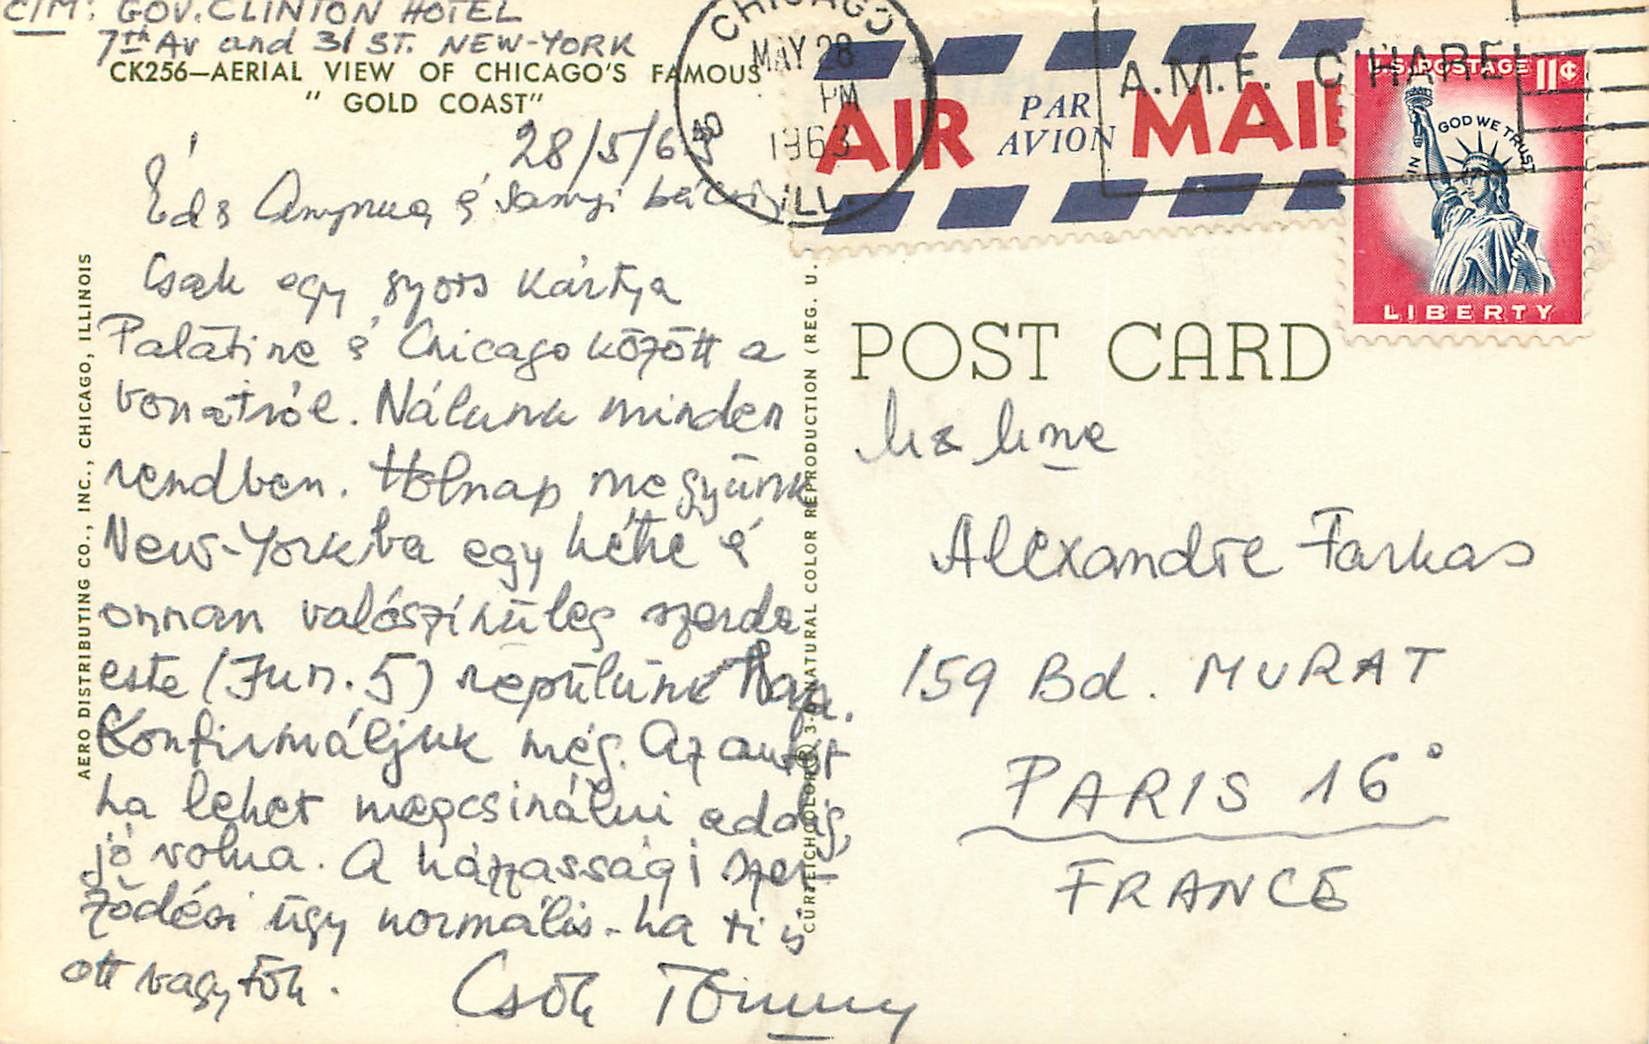 CÍM: GOV. CLINTON HOTEL
7th Av and 31 ST. NEW-YORK
CK256—AERIAL VIEW OF CHICAGO'S FAMOUS
" GOLD COAST"
28/5/63
Éds Anynua, é Sanyi bácsi,
Csak egy gyors kártya
Palatine é Chicago között a
vonatról. Nálunk minden
rendben. Holnap megyünk
New-Yorkba egy hétre é
onnan valószínűleg szerda
este (Jun. 5) repülünk haza.
Konfirmáljuk még. Az autót
ha lehet megcsinálni addig,
jó volna. A házassági szer-
ződési ügy normális - ha ti is
ott vagytok.
Csók Tommy
AERO DISTRIBUTING CO., INC., CHICAGO, ILLINOIS
CURTEICHCOLOR® 3-D NATURAL COLOR REPRODUCTION (REG. U.
CHICAGO
MAY 28
PM
1963
ILL.
A.M.F. O'HARE
AIR PAR AVION MAIL
U.S. POSTAGE 11¢
IN GOD WE TRUST
LIBERTY
POST CARD
Alexandre Farkas
159 Bd. MURAT
PARIS 16°
FRANCE